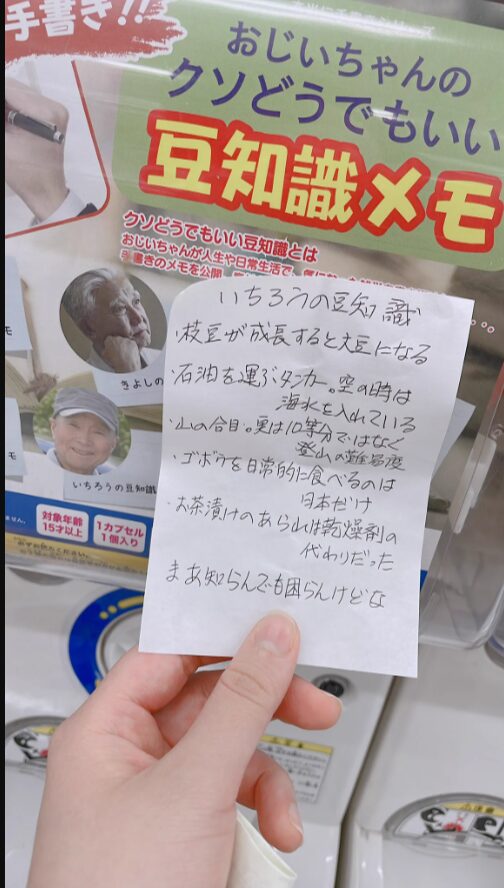 手書き!!
おじいちゃんの
クソどうでもいい
豆知識メモ
クソどうでもいい豆知識とは
おじいちゃんが人生や日常生活で
手書きのメモを公開
いちろうの豆知識
・枝豆が成長すると大豆になる
・石油を運ぶタンカー。空の時は
海水を入れている
・山の合目。実は10等分ではなく
登山の難易度
・ゴボウを日常的に食べるのは
日本だけ
・お茶漬けのあられは乾燥剤の
代わりだった
まあ知らんでも困らんけどな
きよしの
いちろうの豆知識
対象年齢
15才以上
1カプセル
1個入り